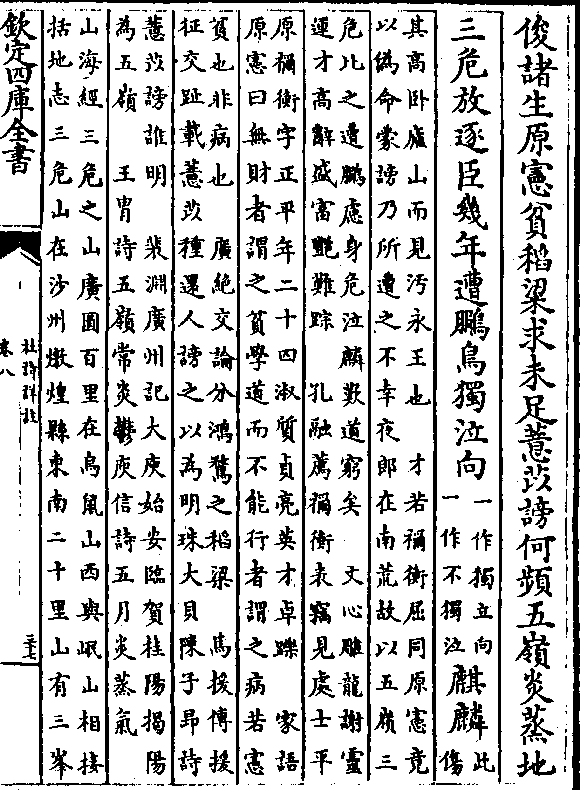 俊諸生原憲貧稻粱求未足薏苡謗何頻五嶺炎蒸地
三危放逐臣幾年遭鵬鳥獨泣向
一作獨立向
一作不獨泣
麒麟
此
傷
其高卧廬山而見汚永王也　才若禰衡屈同原憲竟
以偽命蒙謗乃所遭之不幸夜郎在南荒故以五嶺三
危比之遭鵬慮身危泣麟歎道窮矣　文心雕龍謝靈
運才高辭盛富艷難踪　孔融薦禰衡表竊見處士平
原禰衡字正平年二十四淑質貞亮英才卓躒　家語
原憲曰無財者謂之貧學道而不能行者謂之病若憲
貧也非病也　廣絶交論分鴻騖之稻梁　馬援傳援
征交趾載薏苡種還人謗之以為明珠大貝陳子昂詩
薏苡謗誰明　裴淵廣州記大庾始安臨賀桂陽揭陽
為五嶺　王胄詩五嶺常炎鬱庾信詩五月炎蒸氣
山海經三危之山廣圓百里在鳥鼠山西與岷山相接
括地志三危山在沙州燉煌縣東南二十里山有三峯
欽定四庫全書
杜詩詳註
卷八